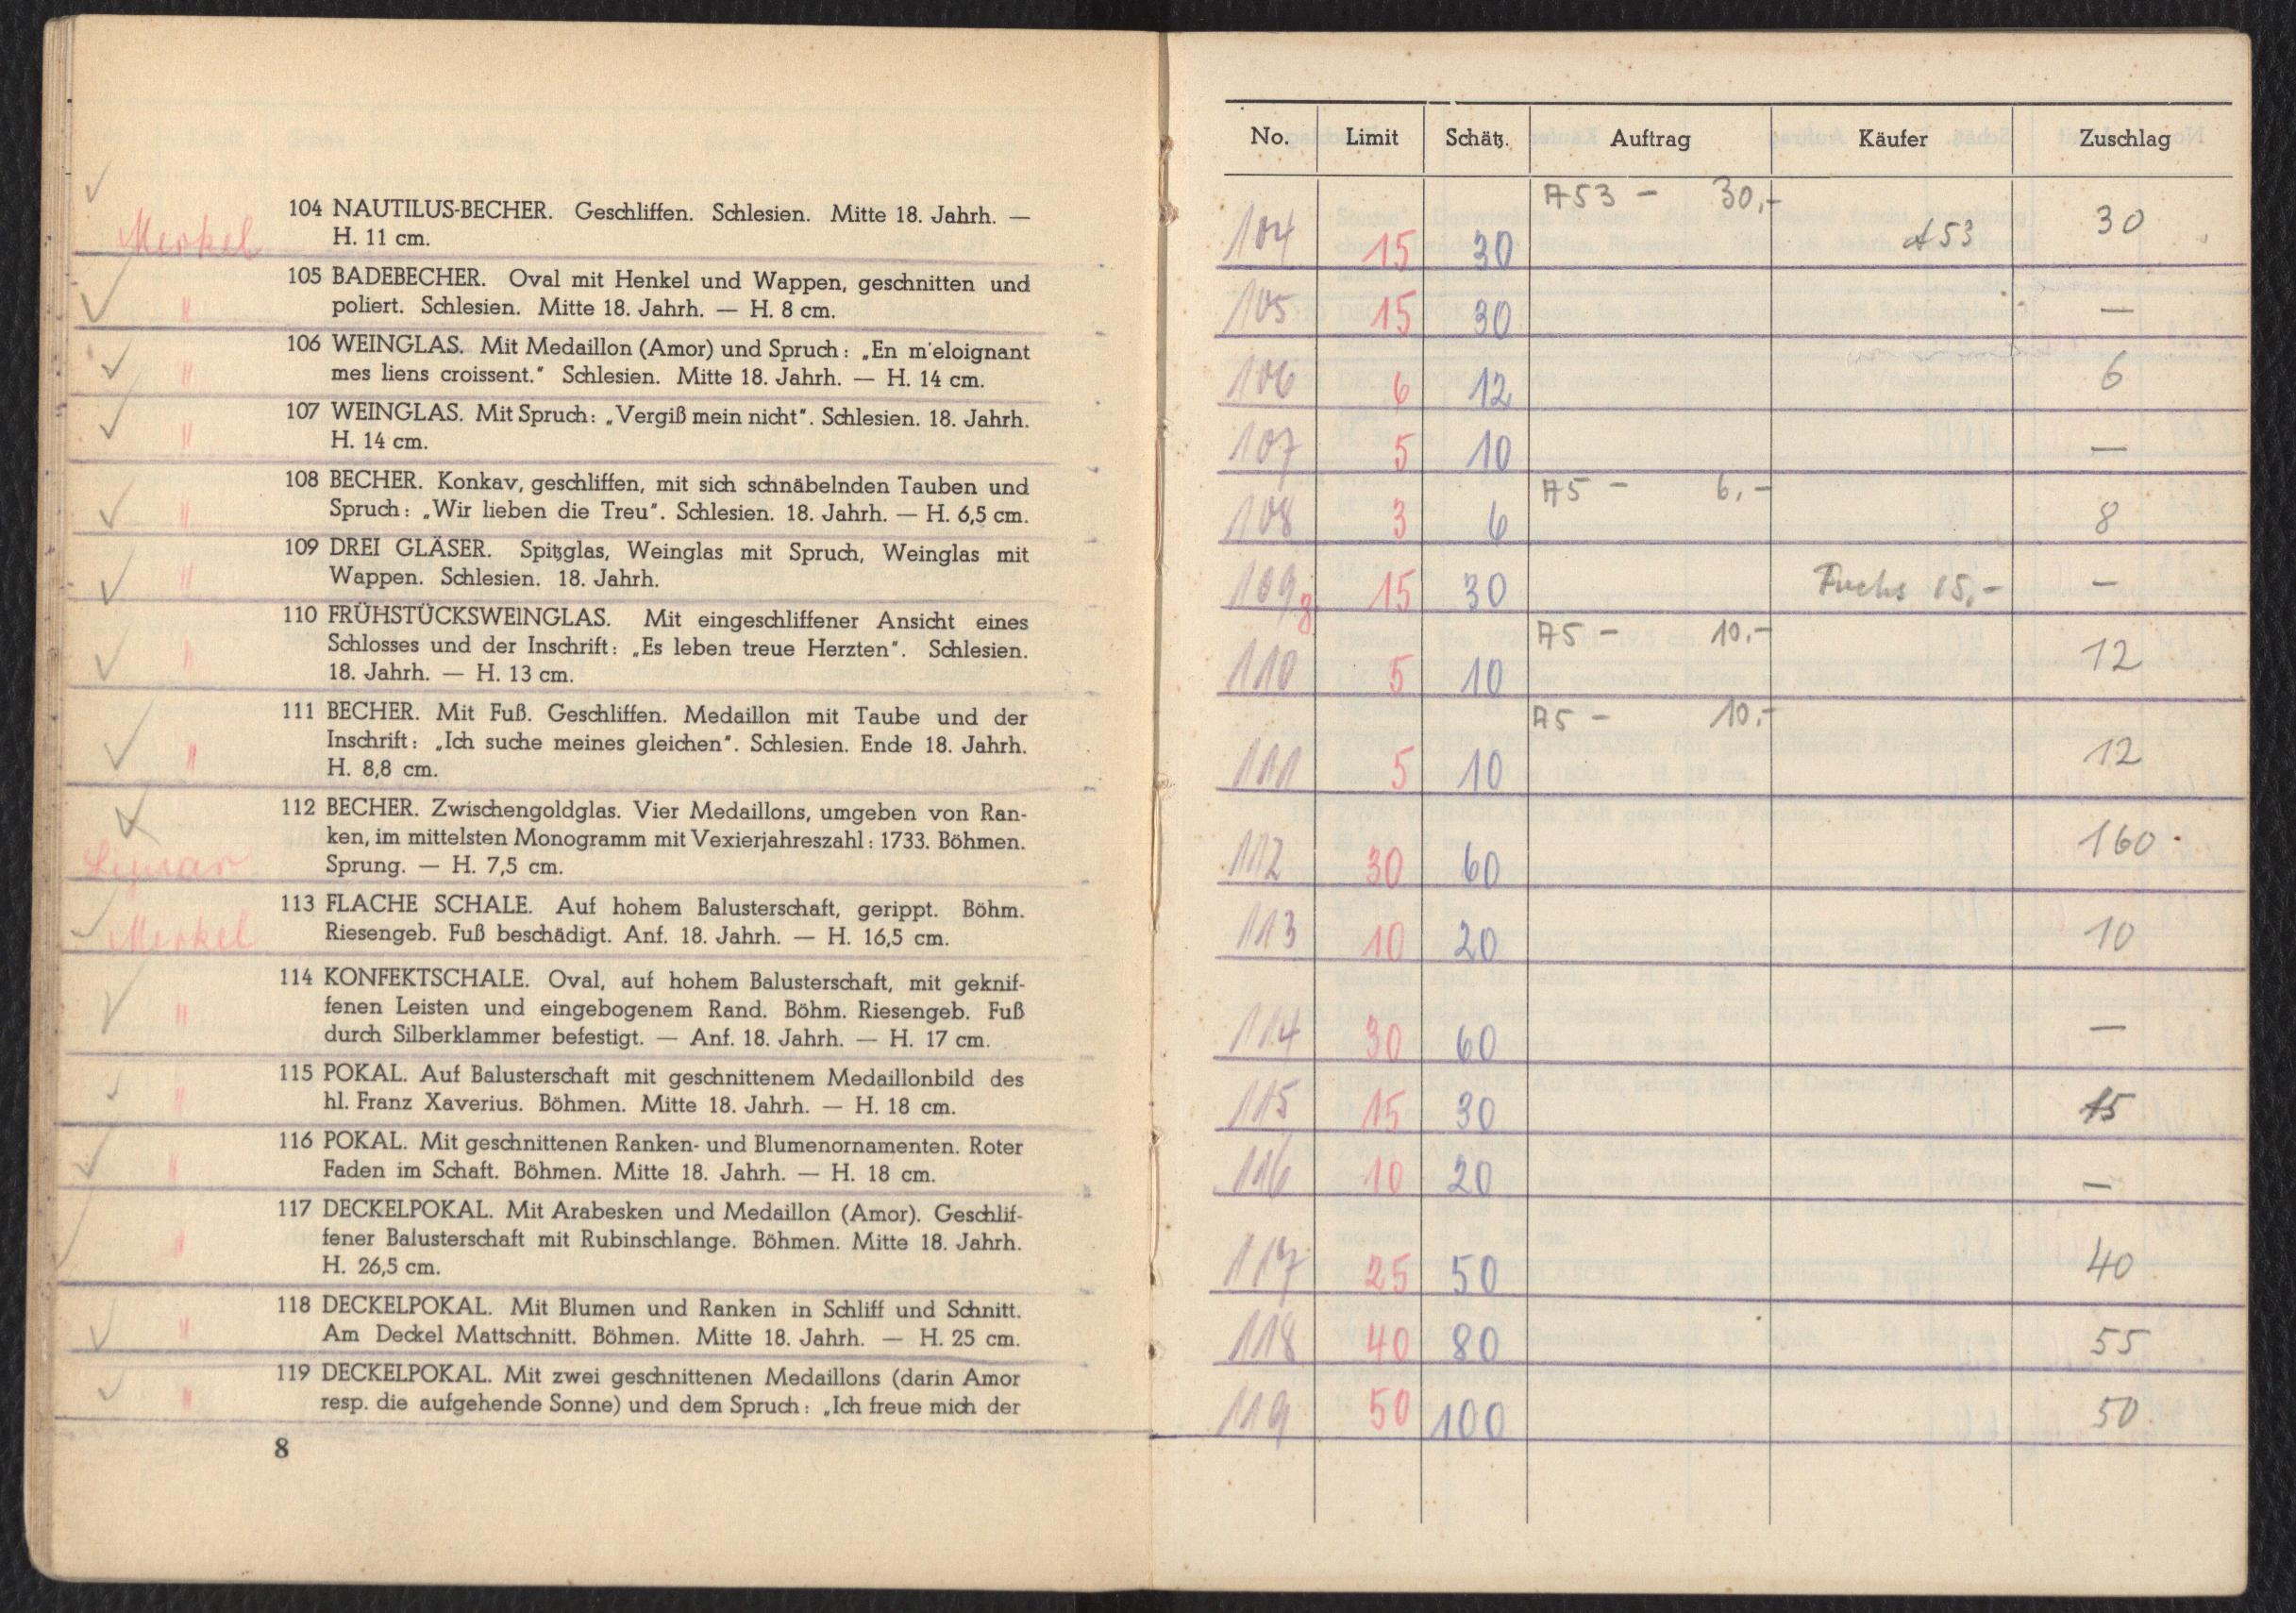 104 NAUTILUS-BECHER. Geschliffen. Schlesien. Mitte 18. Jahrh. —
H. 11 cm.
Merkel
105 BADEBECHER. Oval mit Henkel und Wappen, geschnitten und
poliert. Schlesien. Mitte 18. Jahrh. — H. 8 cm.
"
106 WEINGLAS. Mit Medaillon (Amor) und Spruch: „En m'eloignant
mes liens croissent." Schlesien. Mitte 18. Jahrh. — H. 14 cm.
"
107 WEINGLAS. Mit Spruch: „Vergiß mein nicht". Schlesien. 18. Jahrh.
H. 14 cm.
"
108 BECHER. Konkav, geschliffen, mit sich schnäbelnden Tauben und
Spruch: „Wir lieben die Treu". Schlesien. 18. Jahrh. — H. 6,5 cm.
"
109 DREI GLÄSER. Spitzglas, Weinglas mit Spruch, Weinglas mit
Wappen. Schlesien. 18. Jahrh.
"
110 FRÜHSTÜCKSWEINGLAS. Mit eingeschliffener Ansicht eines
Schlosses und der Inschrift: „Es leben treue Herzten". Schlesien.
18. Jahrh. — H. 13 cm.
"
111 BECHER. Mit Fuß. Geschliffen. Medaillon mit Taube und der
Inschrift: „Ich suche meines gleichen". Schlesien. Ende 18. Jahrh.
H. 8,8 cm.
"
112 BECHER. Zwischengoldglas. Vier Medaillons, umgeben von Ran-
ken, im mittelsten Monogramm mit Vexierjahreszahl: 1733. Böhmen.
Sprung. — H. 7,5 cm.
113 FLACHE SCHALE. Auf hohem Balusterschaft, gerippt. Böhm.
Riesengeb. Fuß beschädigt. Anf. 18. Jahrh. — H. 16,5 cm.
Merkel
114 KONFEKTSCHALE. Oval, auf hohem Balusterschaft, mit geknif-
fenen Leisten und eingebogenem Rand. Böhm. Riesengeb. Fuß
durch Silberklammer befestigt. — Anf. 18. Jahrh. — H. 17 cm.
"
115 POKAL. Auf Balusterschaft mit geschnittenem Medaillonbild des
hl. Franz Xaverius. Böhmen. Mitte 18. Jahrh. — H. 18 cm.
"
116 POKAL. Mit geschnittenen Ranken- und Blumenornamenten. Roter
Faden im Schaft. Böhmen. Mitte 18. Jahrh. — H. 18 cm.
"
117 DECKELPOKAL. Mit Arabesken und Medaillon (Amor). Geschlif-
fener Balusterschaft mit Rubinschlange. Böhmen. Mitte 18. Jahrh.
H. 26,5 cm.
"
118 DECKELPOKAL. Mit Blumen und Ranken in Schliff und Schnitt.
Am Deckel Mattschnitt. Böhmen. Mitte 18. Jahrh. — H. 25 cm.
"
119 DECKELPOKAL. Mit zwei geschnittenen Medaillons (darin Amor
resp. die aufgehende Sonne) und dem Spruch: „Ich freue mich der
"
8
No. Limit Schätz. Auftrag Käufer Zuschlag
A53 — 30,-
104 15 30 A53 30
105 15 30 —
106 6 12 6
107 5 10 —
A5 — 6,-
108 3 6 8
109 3 15 30 Fuchs 15,- —
A5 — 10,-
110 5 10 12
A5 — 10,-
111 5 10 12
112 30 60 160
113 10 20 10
114 30 60 —
115 15 30 15
116 10 20 —
117 25 50 40
118 40 80 55
119 50 100 50